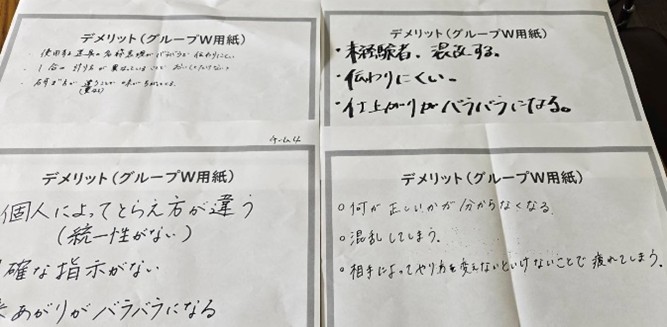 デメリット(グループW用紙)
・使用する道具の名称基準がバラバラで伝わりにくい
・1合の
デメリット(グループW用紙)
・未経験者、混乱する。
・伝わりにくい。
・仕上がりがバラバラになる。
チーム4
デメリット(グループW用紙)
個人によってとらえ方が違う
(統一性がない)
確な指示がない
あがりがバラバラになる
デメリット(グループW用紙)
○何が正しいかが分からなくなる。
○混乱してしまう。
○相手によってやり方を変えないといけないことで疲れてしまう。